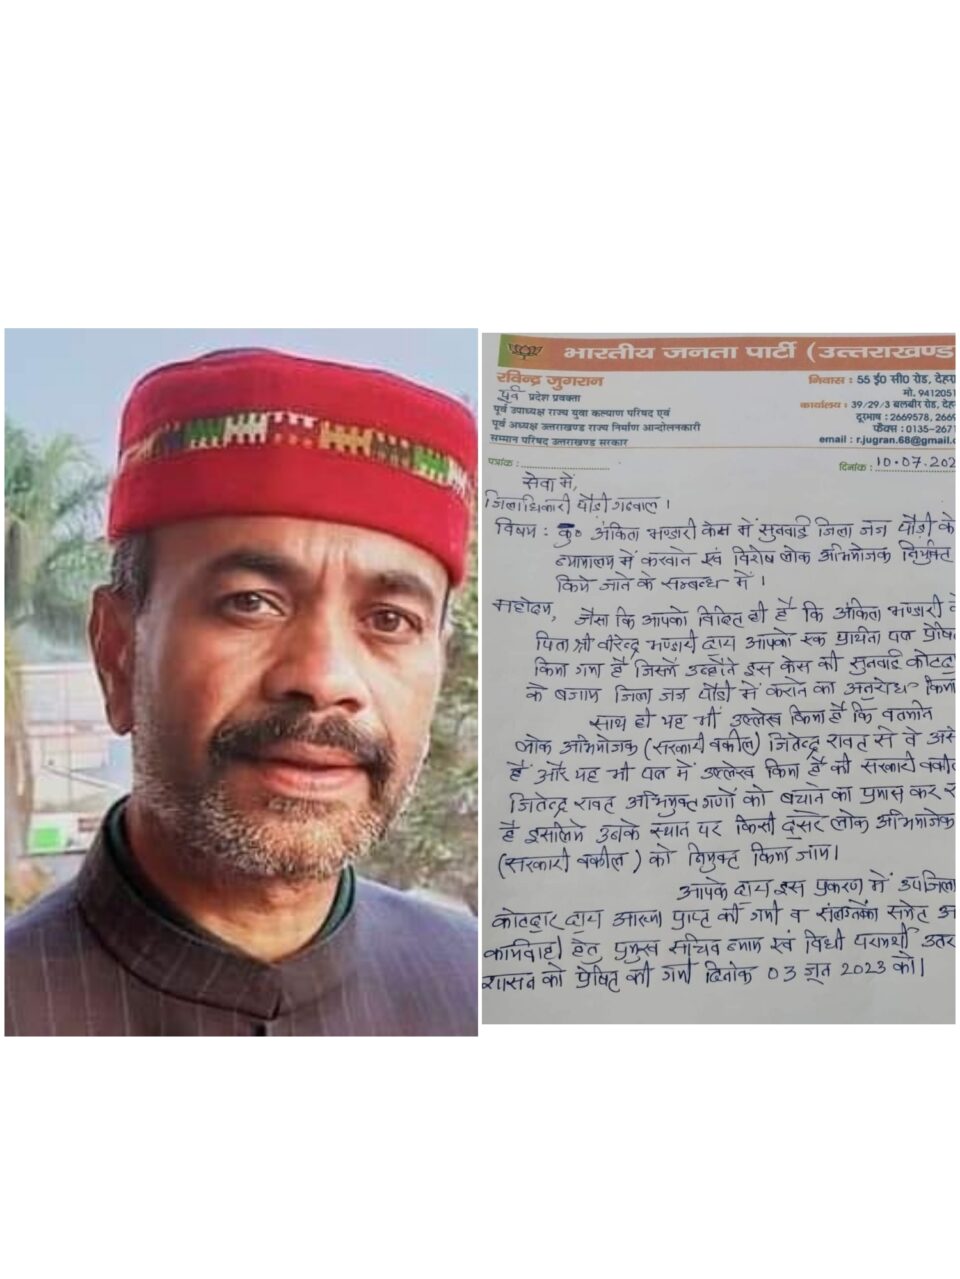 भारतीय जनता पार्टी (उत्तराखण्ड
रविन्द्र जुगरान
पूर्व प्रदेश प्रवक्ता
पूर्व उपाध्यक्ष राज्य युवा कल्याण परिषद एवं
पूर्व अध्यक्ष उत्तराखण्ड राज्य निर्माण आन्दोलनकारी
सम्मान परिषद उत्तराखण्ड सरकार
निवास : 55 ई0 सी0 रोड, देहरा
मो. 9412051
कार्यालय : 39/29/3 बलबीर रोड, देह
दूरभाष : 2669578, 2669
फैक्स : 0135-267
email : r.jugran.68@gmail.c
पत्रांक :
दिनांक : 10.07.202
सेवा में,
जिलाधिकारी पौडी गढवाल ।
विषय : कु० अंकिता भण्डारी केस में सुनवाई जिला जज पौडी के
न्यायालय में करवाने एवं विशेष लोक अभियोजक नियुक्त
किये जाने के सम्बन्ध में ।
महोदय, जैसा कि आपको विदित ही है कि अंकिता भण्डारी के
पिता श्री वीरेन्द्र भण्डारी द्वारा आपको एक प्रार्थना पत्र प्रेषि
किया गया है जिसमें उन्होंने इस केस की सुनवाई कोटद्वा
के बजाय जिला जज पौडी में कराने का अनुरोध किया
साथ ही यह भी उल्लेख किया है कि वर्तमान
लोक अभियोजक (सरकारी वकील) जितेन्द्र रावत से वे असं
हैं और यह भी पत्र में उल्लेख किया है की सरकारी वकील
जितेन्द्र रावत अभियुक्त गणों को बचाने का प्रयास कर र
है इसलिये उनके स्थान पर किसी दूसरे लोक अभियोजक
(सरकारी वकील) को नियुक्त किया जाय।
आपके द्वारा इस प्रकरण में उपजिला
कोटद्वार द्वारा आख्या प्राप्त की गयी व संलग्नकों समेत अ
कार्यवाही हेतु प्रमुख सचिव न्याय एवं विधी परामर्शी उत्तर
शासन को प्रेषित की गयी दिनांक 03 जून 2023 को।